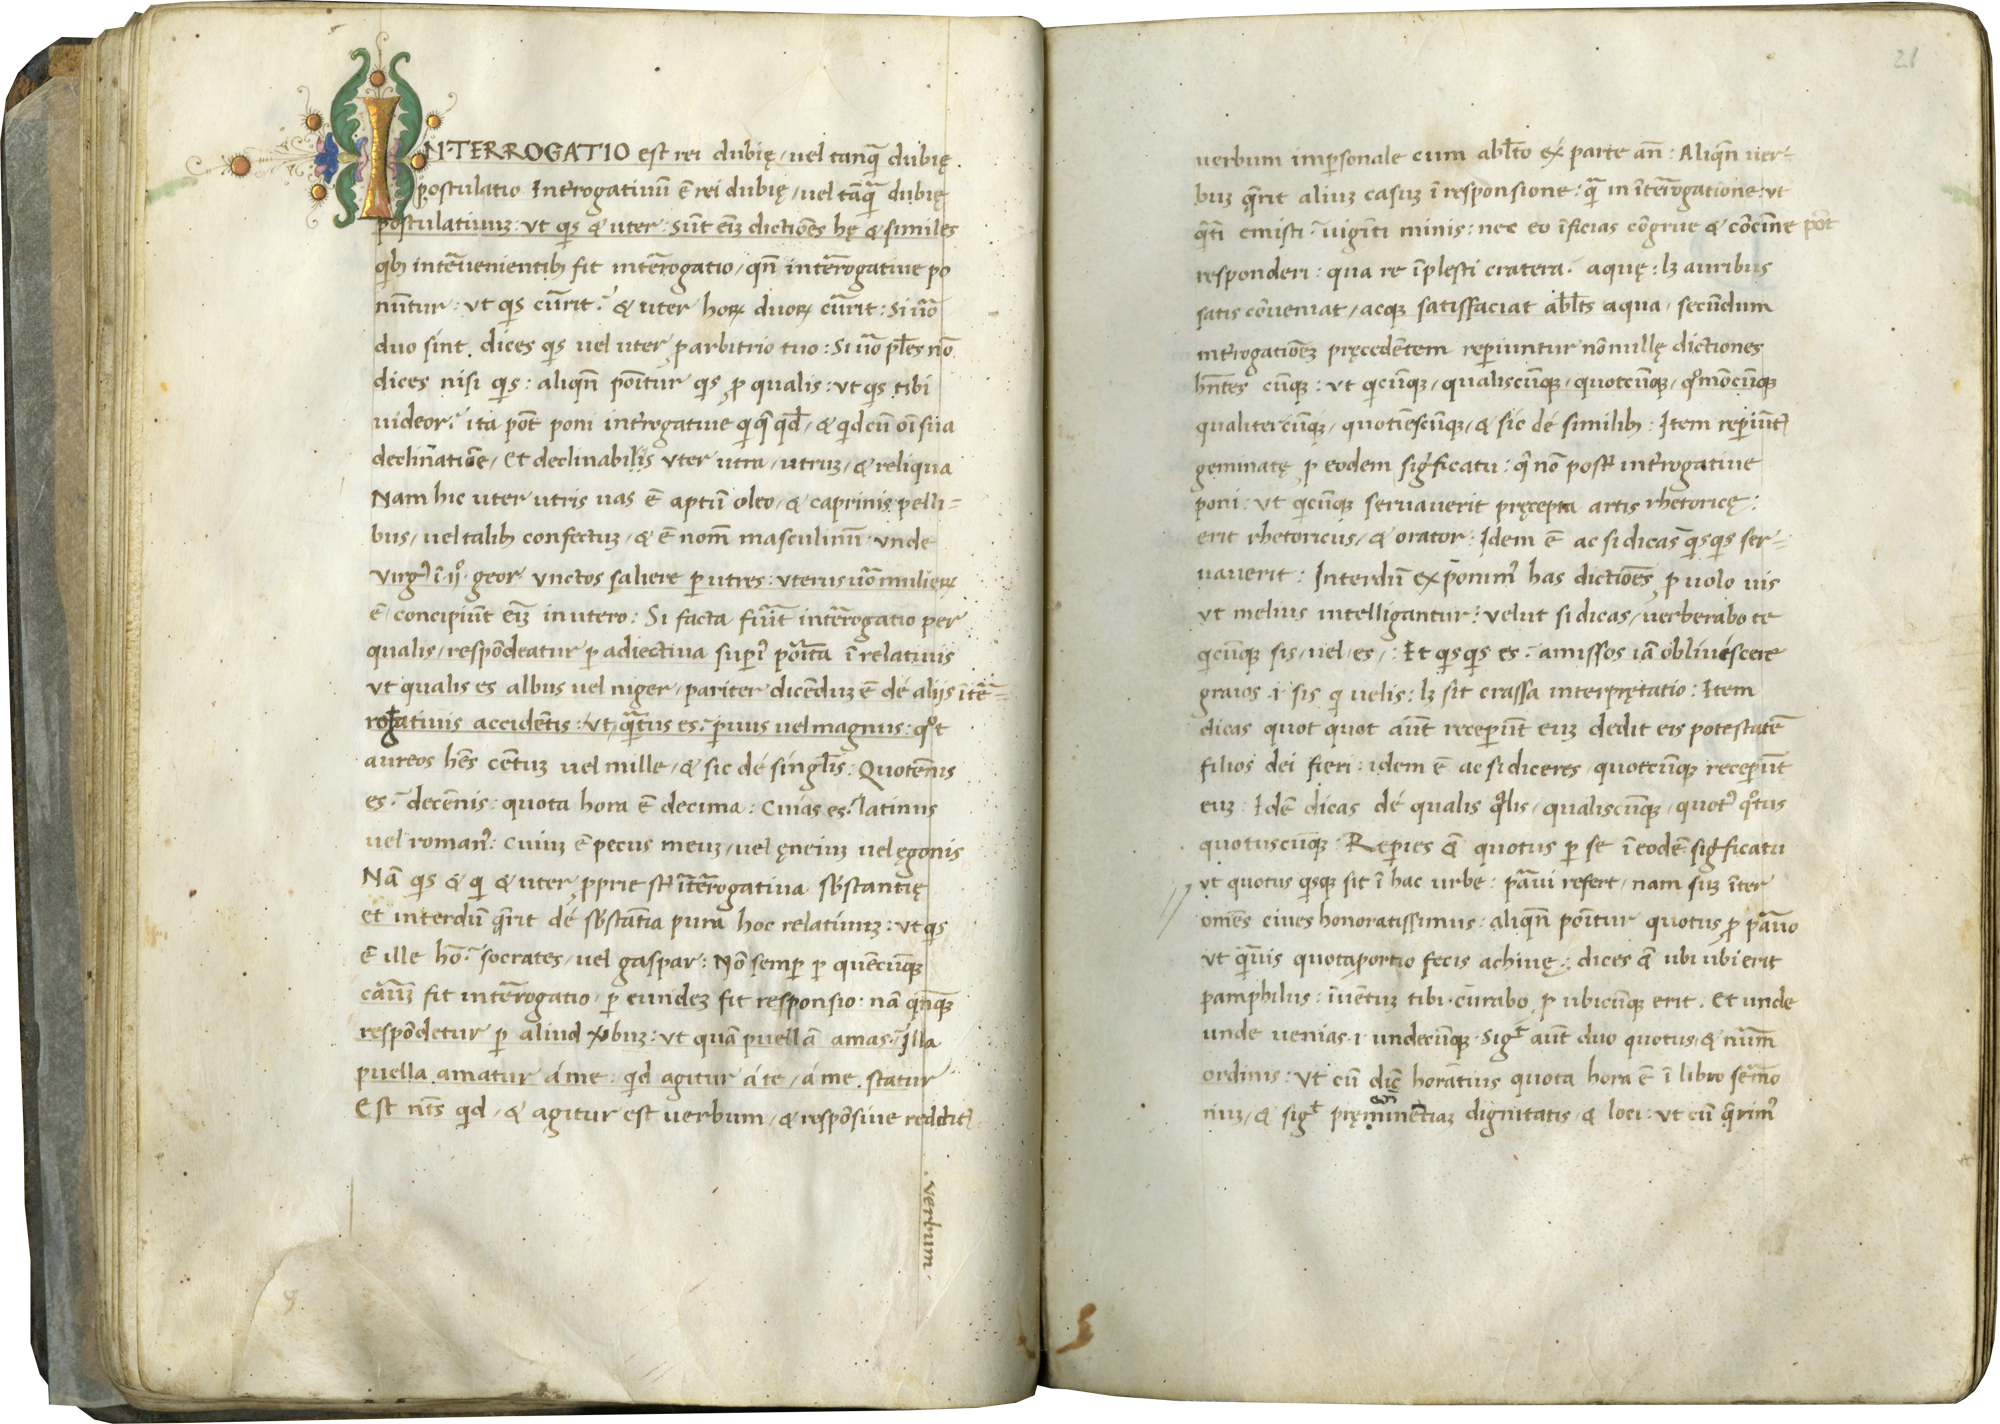 INTERROGATIO est rei dubię, uel tanq̄ dubię.
postulatio Interogatiuū ē rei dubię, uel tāq̄ dubię
postulatiuuꝫ: vt qis & uter: Sūt eīꝫ dictiōes hę & similes
qibꝫ interuenientibꝫ fit interrogatio, qn̄ interrogatiue po
nūtur: vt qis currit? & uter hoꝝ duoꝝ currit: Si ūo
duo sint. dices qis uel uter ꝑ arbitrio tuo: Si ūo plēs nō
dices nisi qis: aliqn̄ pōitur qis ꝓ qualis: vt qis tibi
uideor? ita pōt poni interogatiue qi q̄ qd̄, & qid cū oī sua
declinatiōe, Et declinabilis vter utra, utruꝫ, & reliqua
Nam hic uter utris uas ē aptū oleo, & caprinis pelli-
bus, uel talibꝫ confectuꝫ, & ē nom̄ masculinū: vnde
Virgꝰ ī ijꝰ geor vnctos saliere ꝑ utres: vterus ūo mulieꝝ
ē, concipiūt eīꝫ in utero: Si facta fuīt interrogatio per
qualis, respōdeatur ꝑ adiectiua suꝑꝰ poīta ī relatiuis
vt qualis es albus uel niger, pariter dicēduꝫ ē dé aliis īter-
rogatiuis accidētis: vt, qātus es? paruus uel magnus: qot
aureos hēs cētuꝫ uel mille, & sic dé singlīs: Quotēnis
es? decēnis: quota hora ē decima: Cuias es? latinus
uel romanꝰ: Cuiuꝫ ē pecus meuꝫ, uel ęneiuꝫ uel ęgonis
Nā qis & qi & uter ꝓprie st̄ īterrogatiua sb̄stantię
et interdū q̄rit dé sb̄stātia pura hoc relatiuuꝫ: vt qis
ē ille hō? socrates, uel gaspar: Nō semꝑ ꝑ quēcūqꝫ
cāuꝫ fit interrogatio, ꝑ eundeꝫ fit responsio: nā qnqꝫ
respōdetur ꝑ aliud ū̄buꝫ: vt quā puellā amas? illa
puella amatur á me: qid agitur á te, á me. statur
Est nt̄s qid, & agitur est uerbum, & respōsiue reddit
verbum.
21
uerbum impersonale cum ablt̄o éx parte an̄: Aliqn̄ uer-
buꝫ q̄rit aliuꝫ casuꝫ ī responsione: q̄ in īterrogatione: vt
qāti emisti? uigīti minis: nec eo īficias cōgrue & cōcīne pōt
responderi: qua re īplesti cratera? aquę: lꝫ auribus
satis cōueniat, acqꝫ satisfaciat ablt̄s aqua, secūdum
interogatiōeꝫ pręcedētem reꝑiuntur nōnullę dictiones
hn̄tes cūqꝫ: vt qicūqꝫ, qualiscūqꝫ, quotcūqꝫ, qomōcūqꝫ
qualitercūqꝫ, quotiēscūqꝫ, & sic dé similibꝫ: Item reꝑiūt
geminatę ꝑ eodem sigficatu: q̄ nō post interogatiue
poni: vt qicūqꝫ seruauerit pręcepta artis rhetoricę:
erit rhetoricus, & orator: Idem ē ac si dicas qisqis ser-
uauerit: Interdū exponimꝰ has dictiōes ꝑ uolo uis
vt melius intelligantur: velut si dicas, uerberabo te
qicūqꝫ sis, uel, es,: Et qisqis es? amissos iā obliuiscere
graios .i. sis qi uelis: lꝫ sit crassa interprętatio: Item
dicas quot quot aūt receꝑūt euꝫ dedit eis potestatē
filios dei fieri: idem ē ac si diceres, quotcūqꝫ receꝑūt
euꝫ: Idē dicas dé qualis qālis, qualiscūqꝫ, quotꝰ qotus
quotuscūqꝫ: Reꝑies & quotus ꝑ se ī eodē sigficatu
vt quotus qisqꝫ sit ī hac urbe: parui refert, nam suꝫ īter
omēs ciues honoratissimus: aliqn̄ pōitur quotus ꝓ paruo
vt qāuis quota portio fecis achiuę: dices & ubi ubi erit
pamphilus: iuētuꝫ tibi curabo, ꝑ ubicūqꝫ erit. Et unde
unde uenias .i. undecūqꝫ. Sigt aūt duo quotus, & num̄
ordinis: vt cū dic̄ horatius quota hora ē ī libro sermo
nuꝫ, & sigt pręminētiaꝫ dignitatis, & loci: vt cū q̄rimꝰ